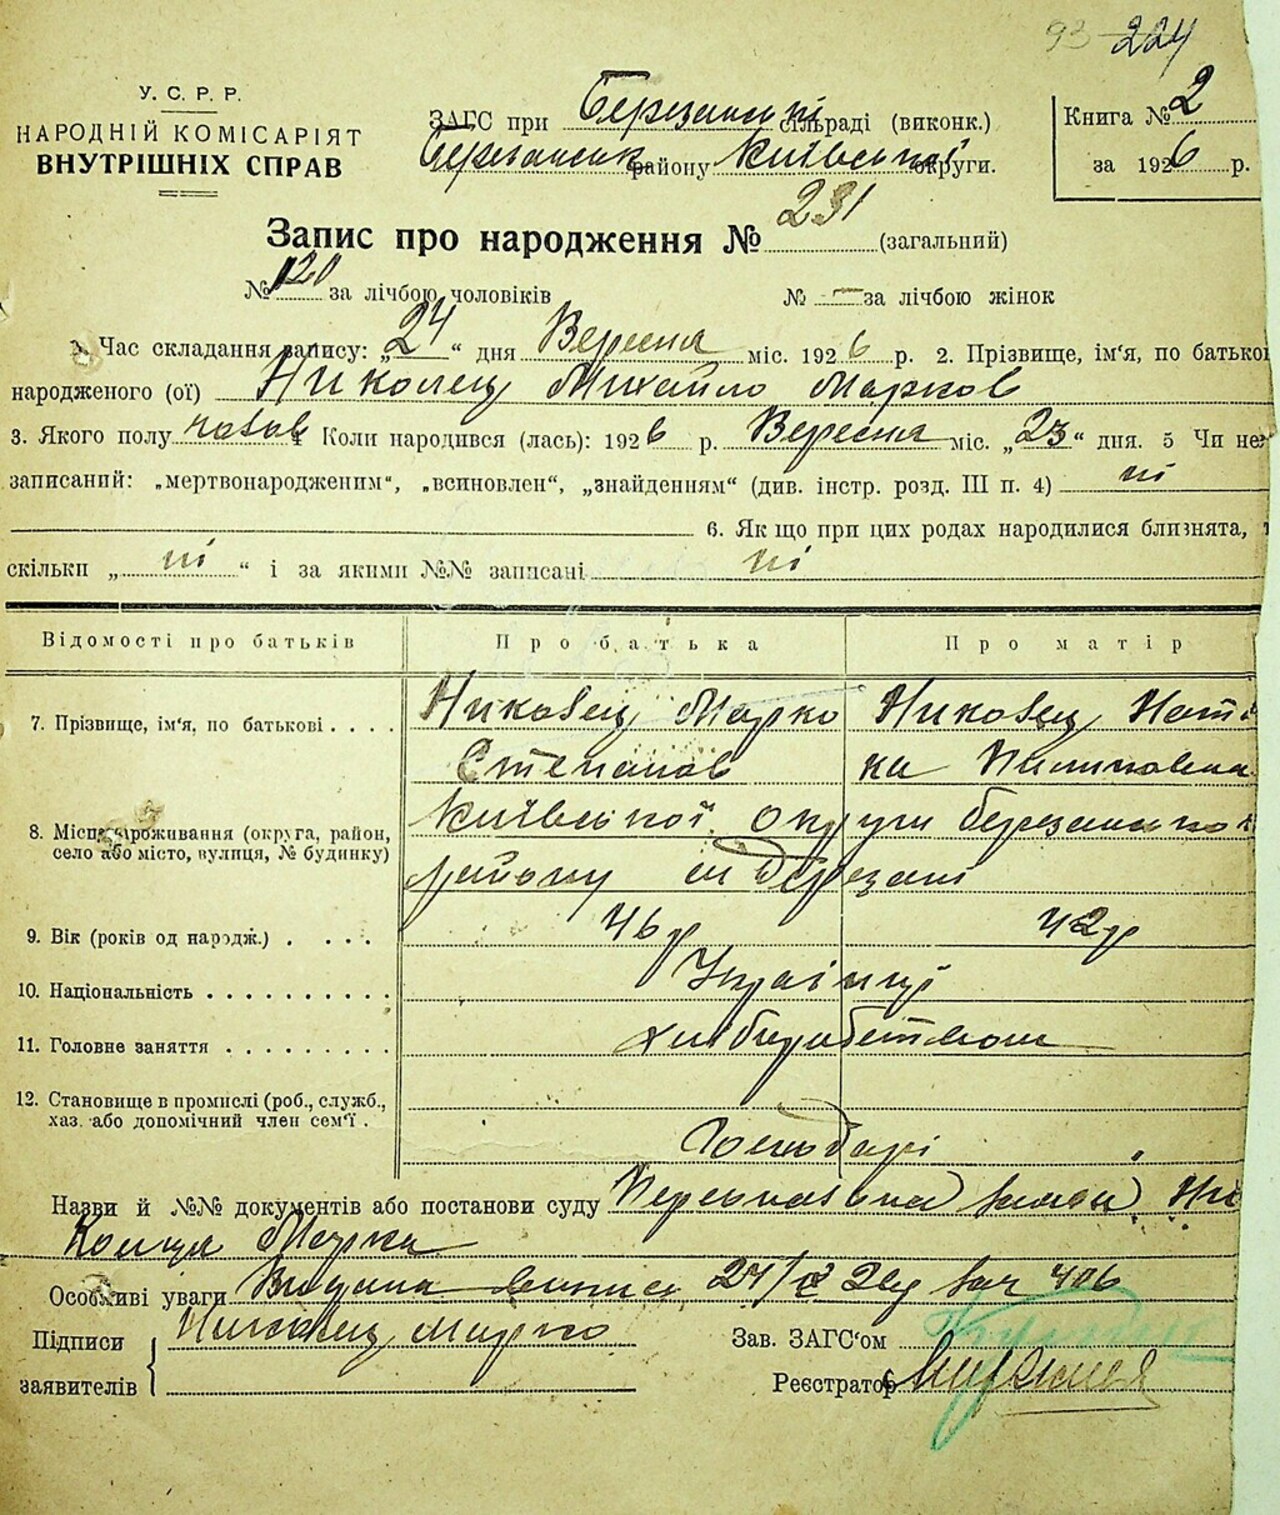 93 224
У. С. Р. Р.
НАРОДНІЙ КОМІСАРІЯТ
ВНУТРІШНІХ СПРАВ
ЗАГС при Березанські сільраді (виконк.)
Березанськ району Київської округи.
Книга № 2
за 1926 р.
Запис про народження № 231 (загальний)
№ 120 за лічбою чоловіків № — за лічбою жінок
1. Час складання запису: „24“ дня Вересня міс. 1926 р. 2. Прізвище, ім'я, по батькові
народженого (ої) Николец Михайло Марков
3. Якого полу 4 Коли народився (лась): 1926 р. Вересня міс. „23“ дня. 5 Чи не
записаний: „мертвонародженим“, „всиновлен“, „знайденням“ (див. інстр. розд. III п. 4) ні
6. Як що при цих родах народилися близнята,
скільки „ні“ і за якими №№ записані ні
Відомості про батьків Про батька Про матір
7. Прізвище, ім'я, по батькові . . . . Марко
Степанов Пилиповна
8. Місце проживання (округа, район,
село або місто, вулиця, № будинку)
Київської округи березансько
району м Березані
9. Вік (років од народж.) . . . . 46 р 42 р
10. Національність . . . . . . . . . . Українці
11. Головне заняття . . . . . . . . . хліборобством
12. Становище в промислі (роб., служб.,
хаз. або допомічний член сем'ї .
Господарі
Назви й №№ документів або постанови суду Ни
Марка
Особливі уваги Видана 406
Підписи Марко Зав. ЗАГС'ом
заявителів Реєстратор